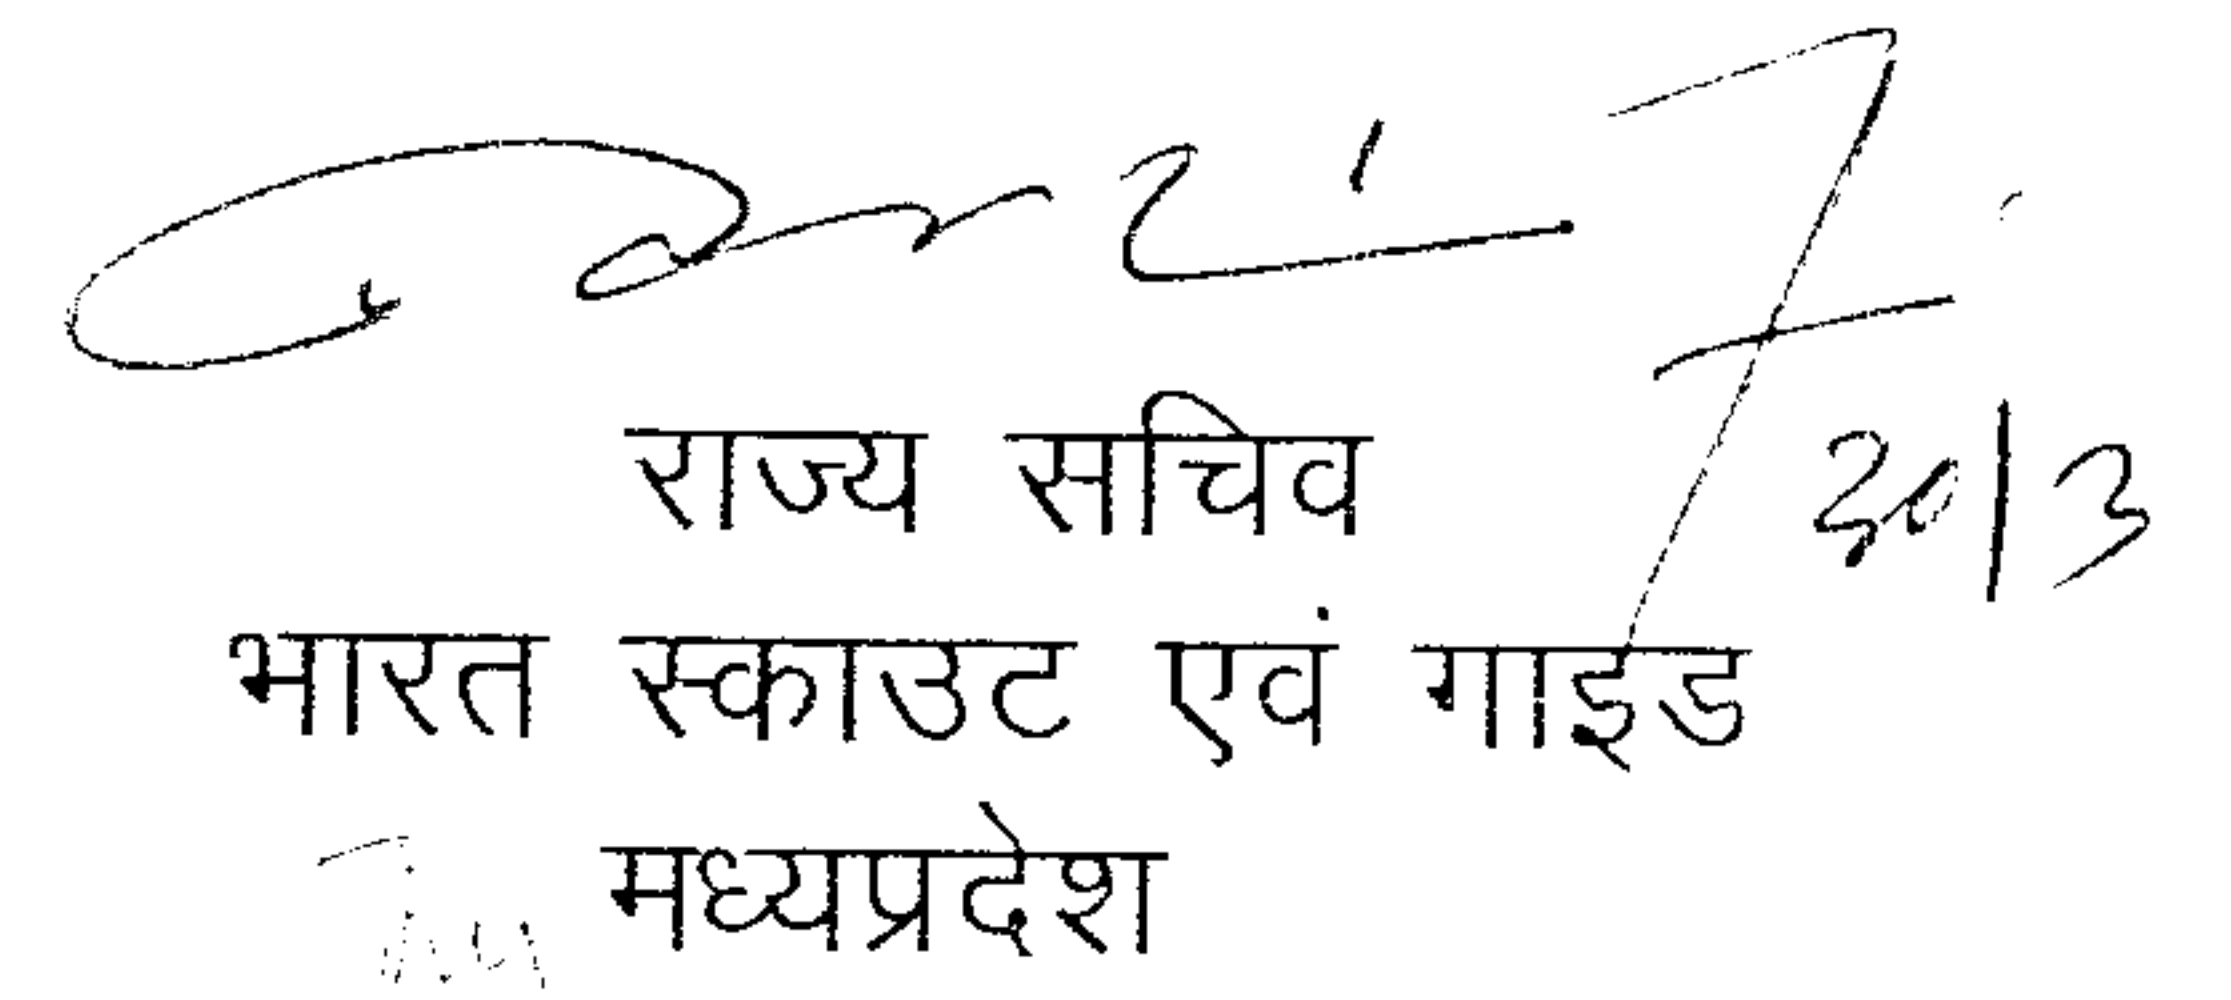 राज्य सचिव
20/3
भारत स्काउट एवं गाइड
मध्यप्रदेश